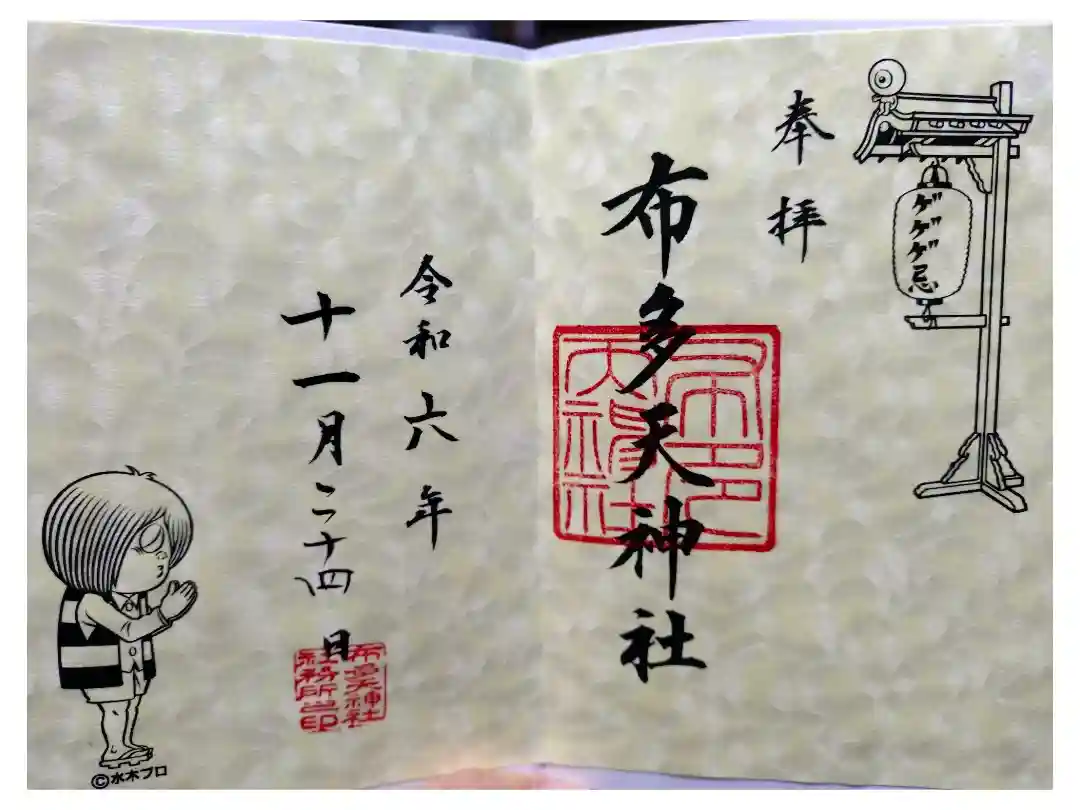 ゲゲゲ忌
奉拝
布多天神社
令和六年
十一月二十四日
布多天神社
社務所之印
©水木プロ